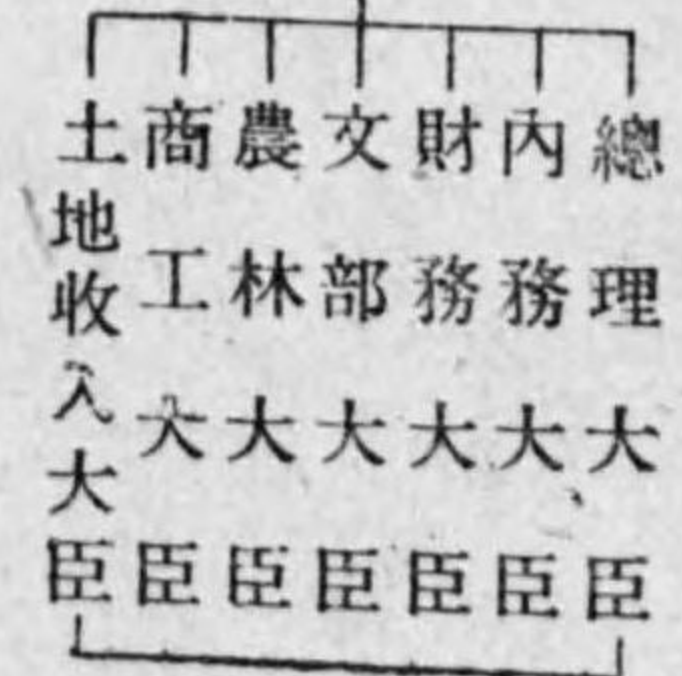 總理大臣
內務大臣
財務大臣
文部大臣
農林大臣
商工大臣
土地收入大臣